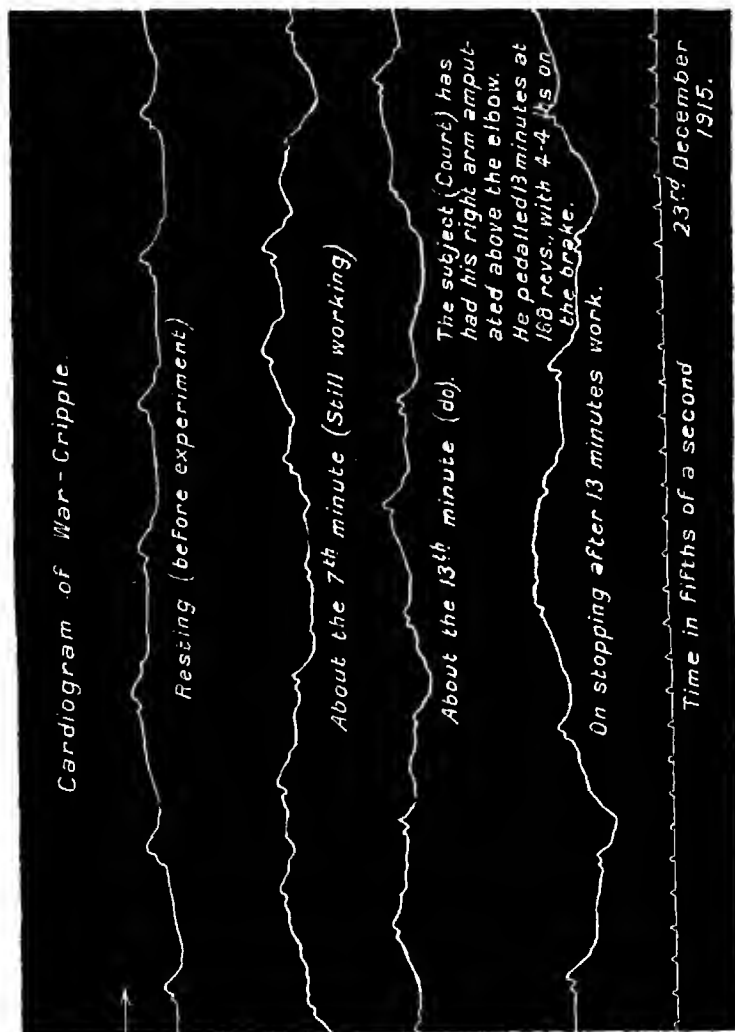 Cardiogram of War-Cripple.
Resting (before experiment)
About the 7th minute (Still working)
About the 13th minute (do).
The subject (Court) has
had his right arm amput-
ated above the elbow.
He pedalled 13 minutes at
168 revs., with 4·4 on
the brake.
On stopping after 13 minutes work.
Time in fifths of a second
23rd December
1915.